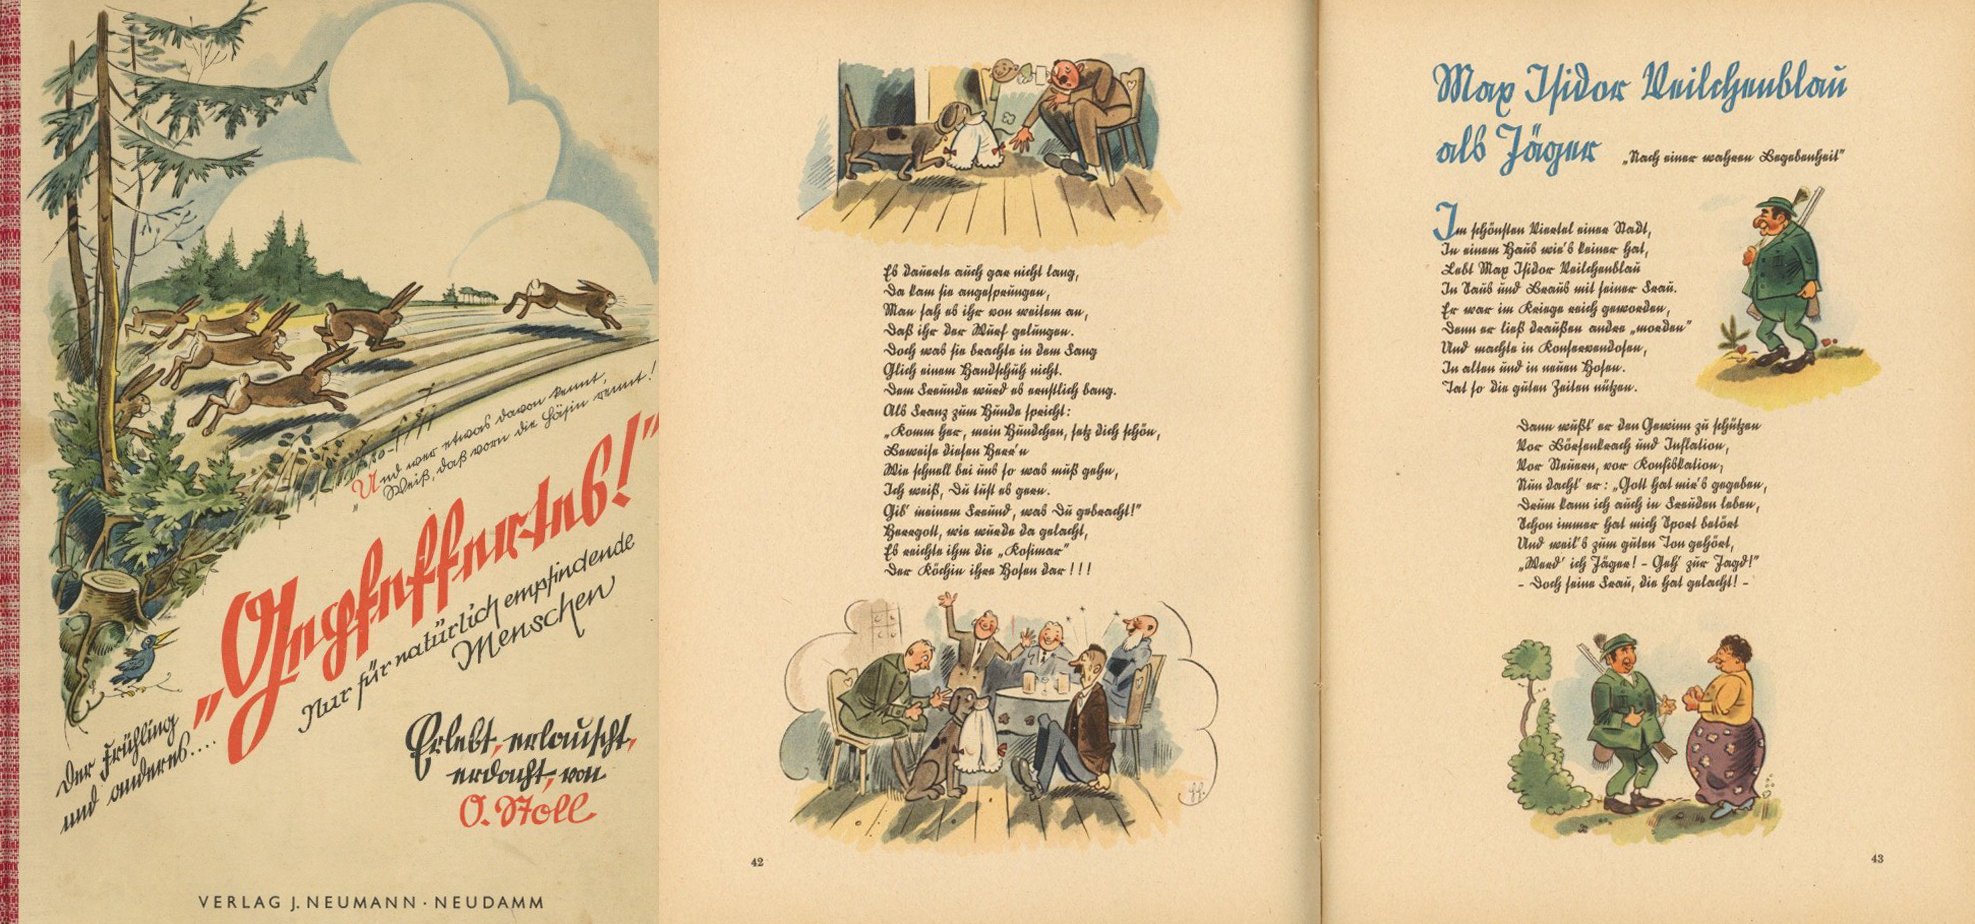 Und wer etwas davon kennt,
Weiß, daß vorn die Häsin rennt!
„Gepfeffertes!“
Nur für natürlich empfindende
Menschen
Der Frühling
und anderes....
Erlebt, erlauscht,
erdacht, von
O. Stoll
VERLAG J. NEUMANN · NEUDAMM
Es dauerte auch gar nicht lang,
Da kam sie angesprungen,
Man sah es ihr von weitem an,
Daß ihr der Wurf gelungen.
Doch was sie brachte in dem Fang
Glich einem Handschuh nicht.
Dem Freunde wurd es ernstlich bang.
Als Franz zum Hunde spricht:
„Komm her, mein Hündchen, setz dich schön,
Beweise diesen Herr'n
Wie schnell bei uns so was muß gehn,
Ich weiß, Du tust es gern.
Gib' meinem Freund, was Du gebracht!“
Herrgott, wie wurde da gelacht,
Es reichte ihm die „Kosimar“
Der Köchin ihre Hosen dar!!!
42
Max Isidor Veilchenblau
als Jäger
„Nach einer wahren Begebenheit“
Im schönsten Viertel einer Stadt,
In einem Haus wie's keiner hat,
Lebt Max Isidor Veilchenblau
In Saus und Braus mit seiner Frau.
Er war im Kriege reich geworden,
Denn er ließ draußen andre „morden“
Und machte in Konservendosen,
In alten und in neuen Hosen.
Tat so die guten Zeiten nützen.
Dann wußt' er den Gewinn zu schützen
Vor Börsenkrach und Inflation,
Vor Steuern, vor Konfiskation;
Nun dacht' er: „Gott hat mir's gegeben,
Drum kann ich auch in Freuden leben,
Schon immer hat mich Sport betört
Und weil's zum guten Ton gehört,
„Werd' ich Jäger! – Geh' zur Jagd!“
– Doch seine Frau, die hat gelacht! –
43